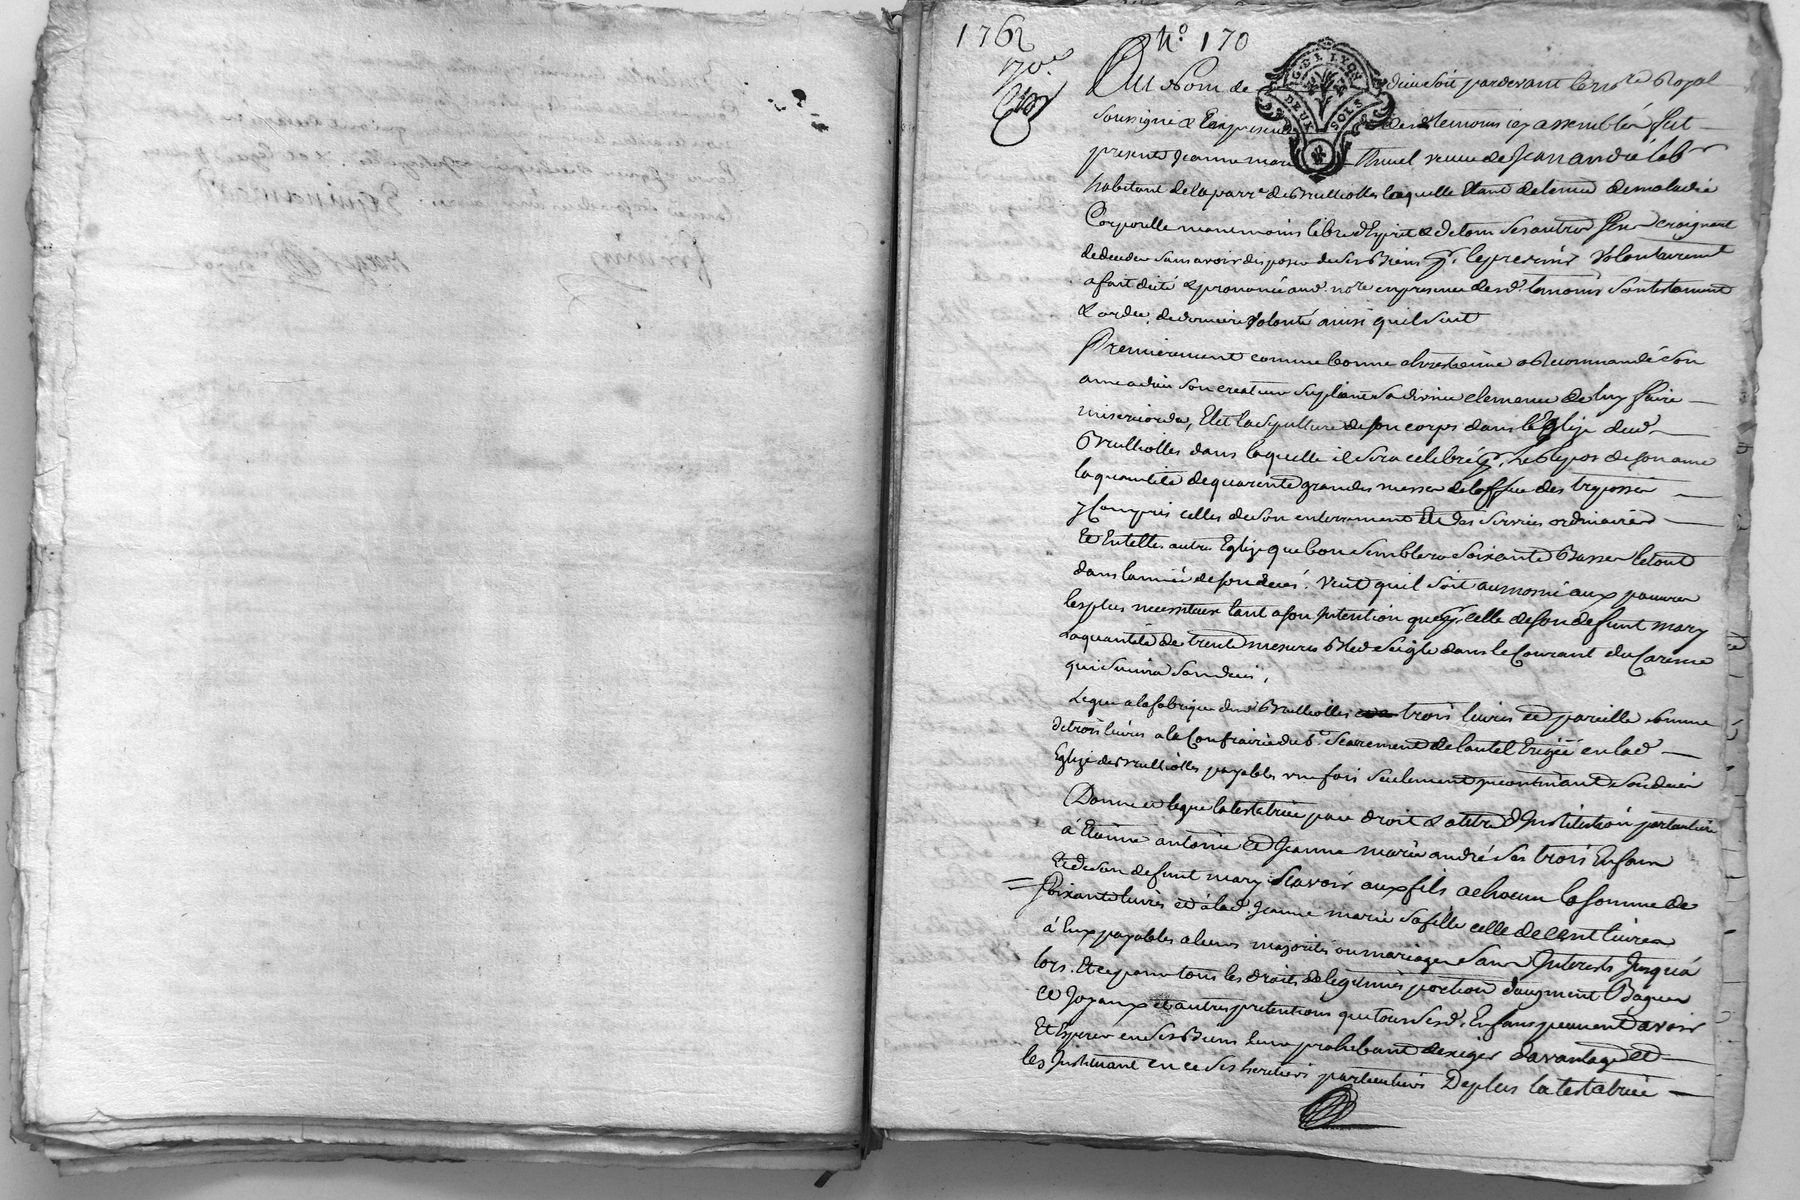 1762
N.o 170
G. DE LYON
DEUX SOLS
Au Nom de dieu soit pardevant le no.re Royal
soussigné & En presence des temoins icy assemblés fut
presente Jeanne marie veuve de Jean andré lab.r
habitant de la parr.e de Brulliolles laquelle Etant detenue de maladie
Corporelle neanmoins libre d'Esprit & de tous ses autres sens craignant
de deceder sans avoir disposé de ses Biens p.r le present volontairement
a fait dicté & prononcé aud. no.re en presence desd. temoins son testament
& ord.e de derniere volonté ainsi quil suit
Premierement comme bonne chrestienne a Recommandé son
ame a dieu son createur supliant sa divine clemence de luy faire
misericorde, Elit la sepulture de son corps dans l'Eglize dud.
Brulliolles dans laquelle il sera celebré p.r le Repos de son ame
la quantité de quarente grandes messes de l'office des trepassés
y Compris celles de son enterrement Et des services ordinaires
Et En telles autres Eglize que bon semblera soixante Basses le tout
dans l'année de son deces. veut quil soit aumosné aux pauvres
les plus necessiteux tant a son Intention que p.r celle de son defunt mary
la quantité de trente mesures Bled seigle dans le Courant du Caresme
qui suivra son deces,
Legue a la fabrique dud. Brulliolles trois livres et pareille somme
de trois livres a la Confrairie du S.t Sacrement de l'autel Erigée en lad.
Eglize de Brulliolles payables une fois seulement incontinant son deces
Donne et legue la testatrice par droit & a titre d'Institution particuliere
á Etienne antoine Et Jeanne marie andré ses trois Enfans
Et de son defunt mary sçavoir aux fils a chacun la somme de
soixante livres et á lad. Jeanne marie sa fille celle de cent livres
á Eux payables a leurs majorités ou mariages sans Interests Jusqu'á
lors. Et ce pour tous les droits de legitimes portion d'augment Bagues
et Joyaux et autres pretentions que tous sesd. Enfans peuvent avoir
Et Esperer en ses Biens leur prohibant d'exiger davantage et
les Instituant en ce ses heritiers particuliers De plus la testatrice